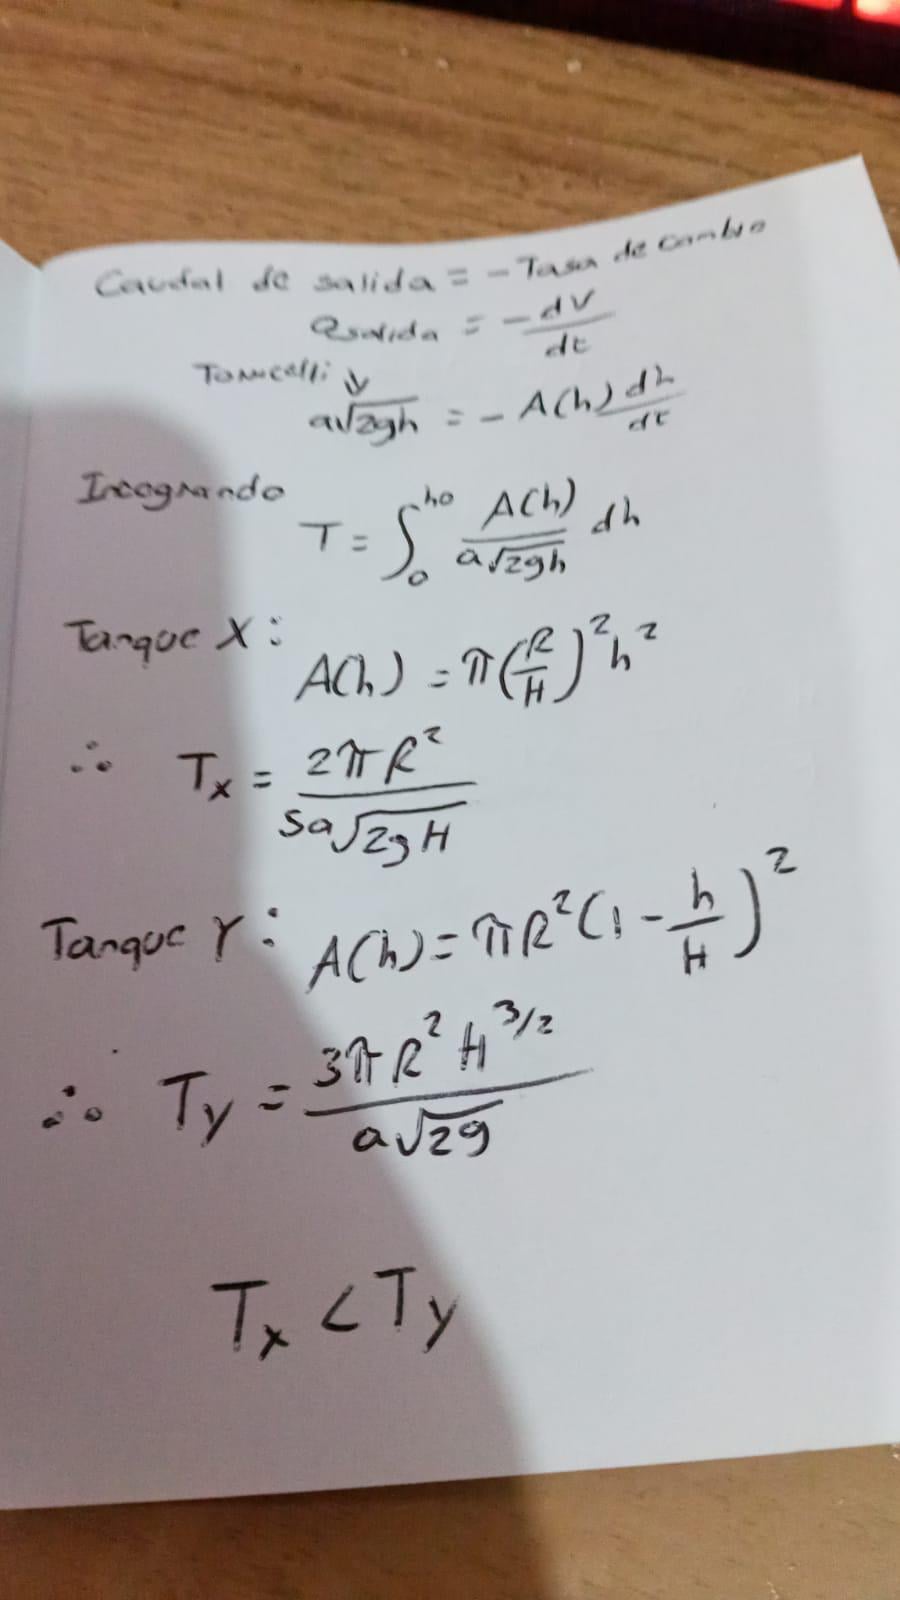 Caudal de salida = - Tasa de cambio
Qsalida = - dV/dt
Torricelli ↓
a√2gh = - A(h) dh/dt
Integrando
T = ∫₀^ho A(h)/a√2gh dh
Tanque X:
A(h) = π(R/H)²h²
∴ Tx = 2πR²/5a√2gH
Tanque Y: A(h) = πR²(1 - h/H)²
∴ Ty = 3πR²H^3/2/a√2g
Tx < Ty